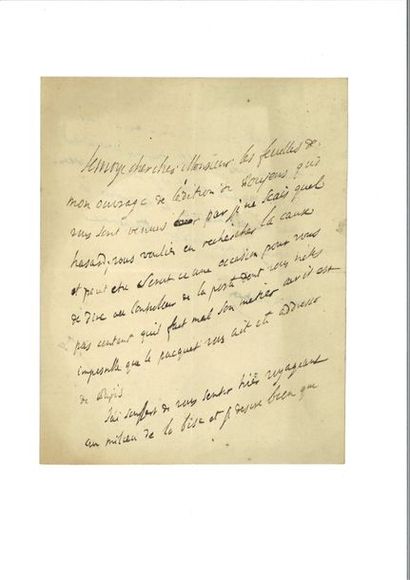 chercher Monsieur les feuilles de
mon ouvrage de l'édition de qui
vous sont venues par je ne scais quel
hasard, vous voulies en rechercher la cause
et peut etre seroit ce une occasion pour vous
de dire au Controlleur de la poste dont vous n'êtes
pas content qu'il fait mal son metier car il est
impossible que le pacquet vous ait été addressé
de
J'ai souffert de vous sentir hier voyageant
au milieu de la bise et je desire bien que